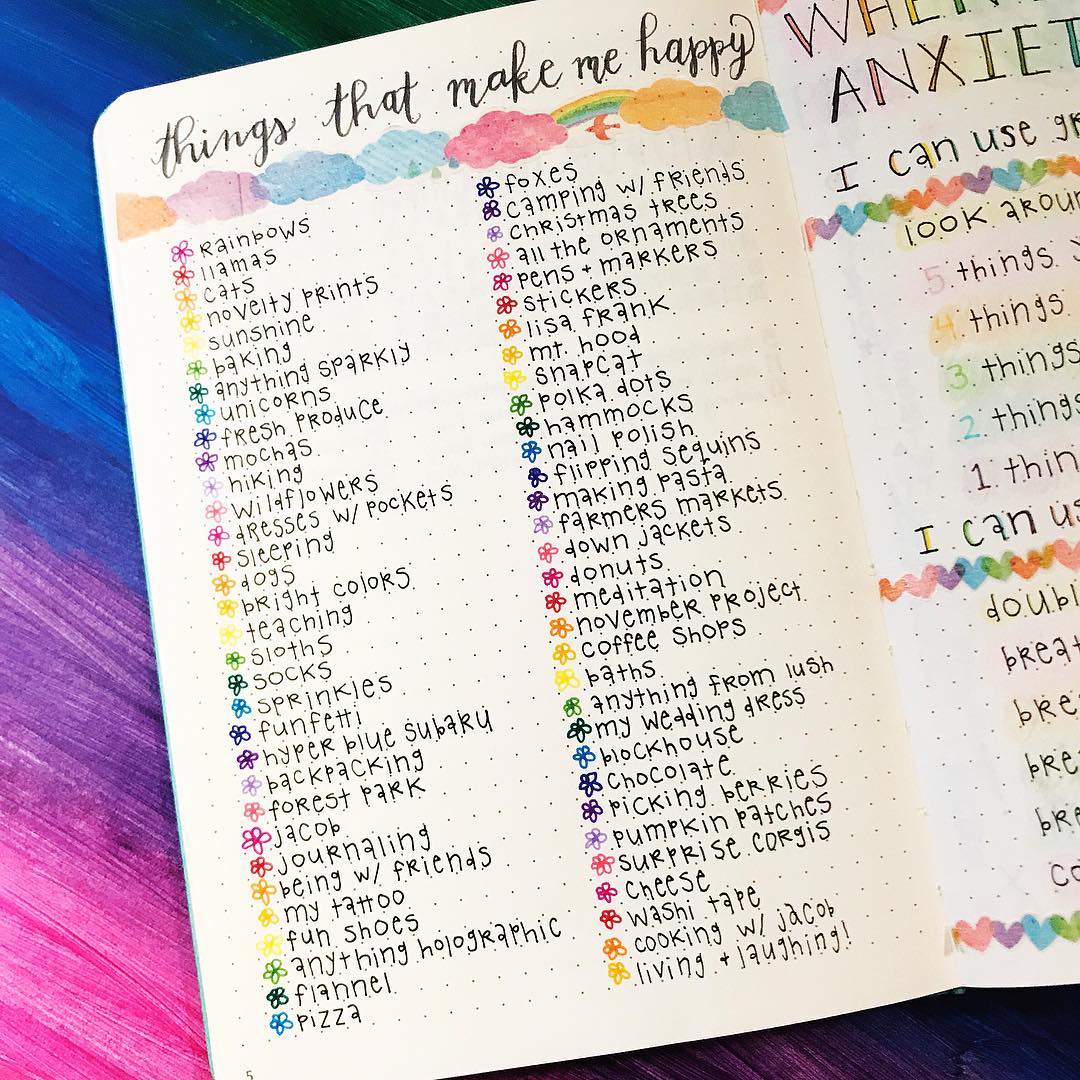 things that make me happy
rainbows
llamas
cats
novelty prints
sunshine
baking
anything sparkly
unicorns
fresh produce
mochas
hiking
wildflowers
dresses w/ pockets
sleeping
dogs
bright colors
teaching
sloths
socks
sprinkles
funfetti
hyper blue subaru
backpacking
forest park
jacob
journaling
being w/ friends
my tattoo
fun shoes
anything holographic
flannel
pizza
foxes
camping w/ friends
christmas trees
all the ornaments
pens + markers
stickers
lisa frank
mt. hood
snapcat
polka dots
hammocks
nail polish
flipping sequins
making pasta
farmers markets
down jackets
donuts
meditation
november project
coffee shops
baths
anything from lush
my wedding dress
blockhouse
chocolate
picking berries
pumpkin patches
surprise corgis
cheese
washi tape
cooking w/ jacob
living + laughing!
5
WHEN
ANXIET
I can use gr
look aroun
5. things y
4. things
3. things
2. things
1. thin
I can us
doubl
breat
bre
brea
bre
co